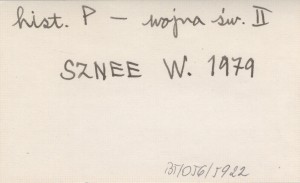 hist. P — wojna św. II
SZNEE W. 1979
BT/056/5922